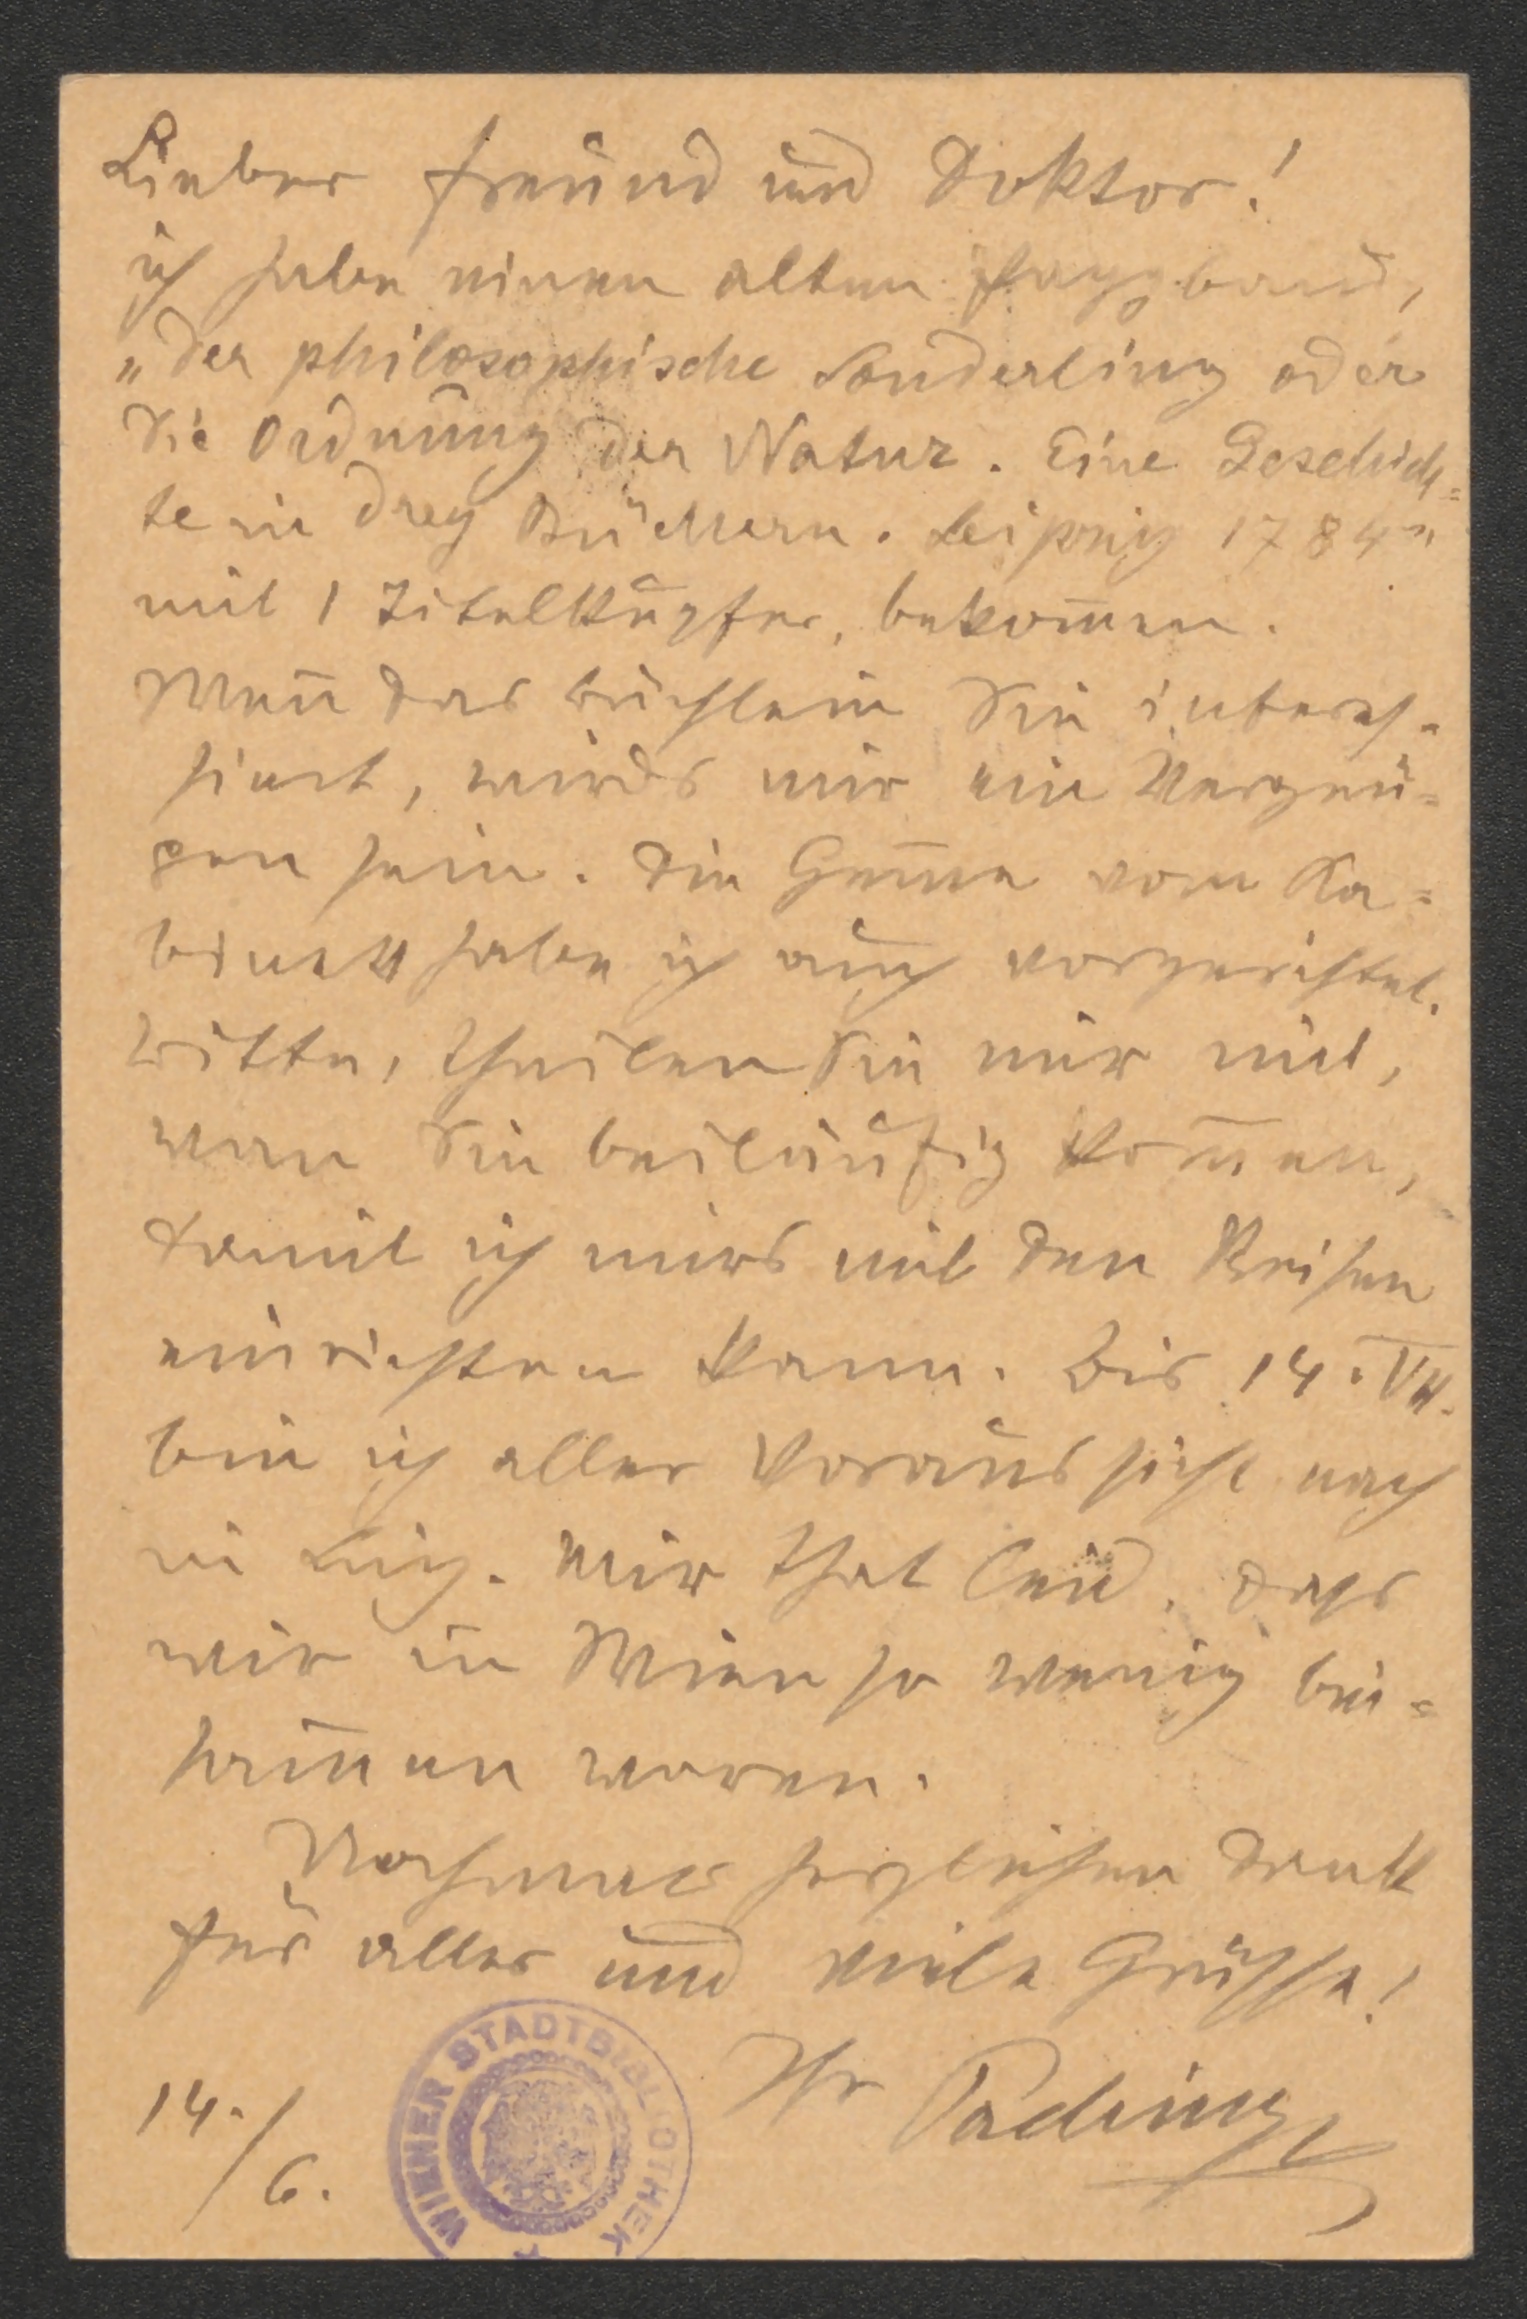 Lieber Freund und Doktor!
ich habe einen alten Pappband,
„Der philosophische Sonderling oder
die Ordnung der Natur. Eine Geschich=
te in drey Büchern. Leipzig 1784"
mit 1 Titelkupfer, bekom̄en.
Wen̄ das Büchlein Sie interes-
siert, wirds mir ein Vergnü=
gen sein. Die Gem̄e vom Ka=
binett habe ich auch vorgerichtet.
Bitte, theilen Sie mir mit,
wan Sie beiläufig kom̄en,
damit ich mirs mit den Reisen
einrichten kann. Bis 14. VII.
bin ich aller Voraussicht nach
in Linz. Mir that leid, dass
wir in Wien so wenig bei=
sam̄en waren.
Nochmals herzlichen Dank
für alles und viele Grüsse!
Ihr Pachinger
14./6.
WIENER STADTBIBLIOTHEK